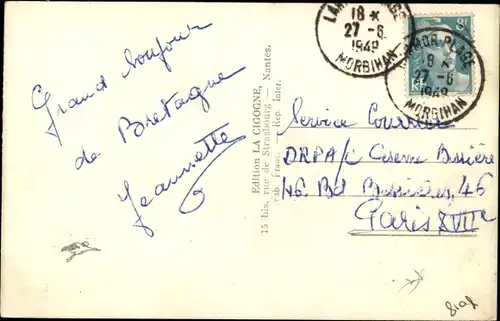 Grand bonjour
de Bretagne
Jeannette
Edition LA CIGOGNE,
15 bis, rue de Strasbourg — Nantes.
Fab. Franç. Rep. Inter.
LARMOR-PLAGE
18 *
27-6
1949
MORBIHAN
LARMOR-PLAGE
18 *
27-6
1949
MORBIHAN
8F
Service Courrier
DRPA/i Caserne Bessière
46. Bd Bessières, 46
Paris XVIIe